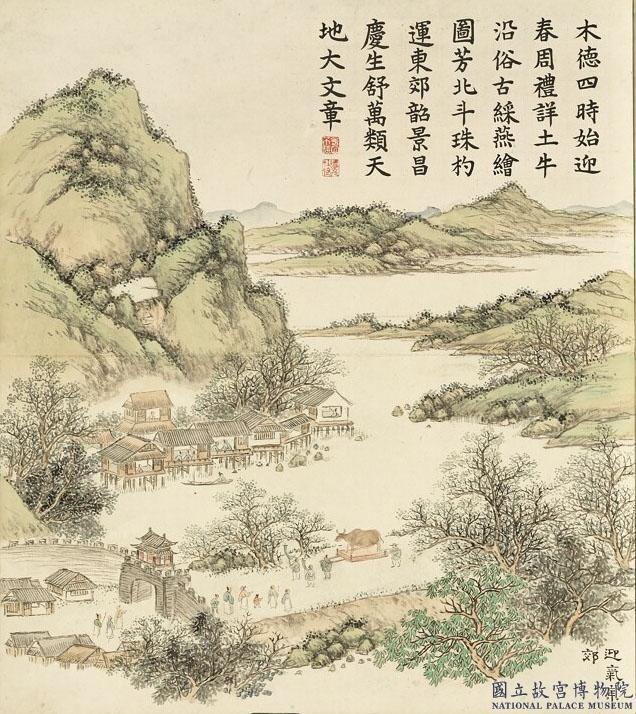 木德四時始迎
春周禮詳土牛
沿俗古綵燕繪
圖芳北斗珠杓
運東郊韶景昌
慶生舒萬類天
地大文章
迎氣東
郊
國立故宮博物院
NATIONAL PALACE MUSEUM